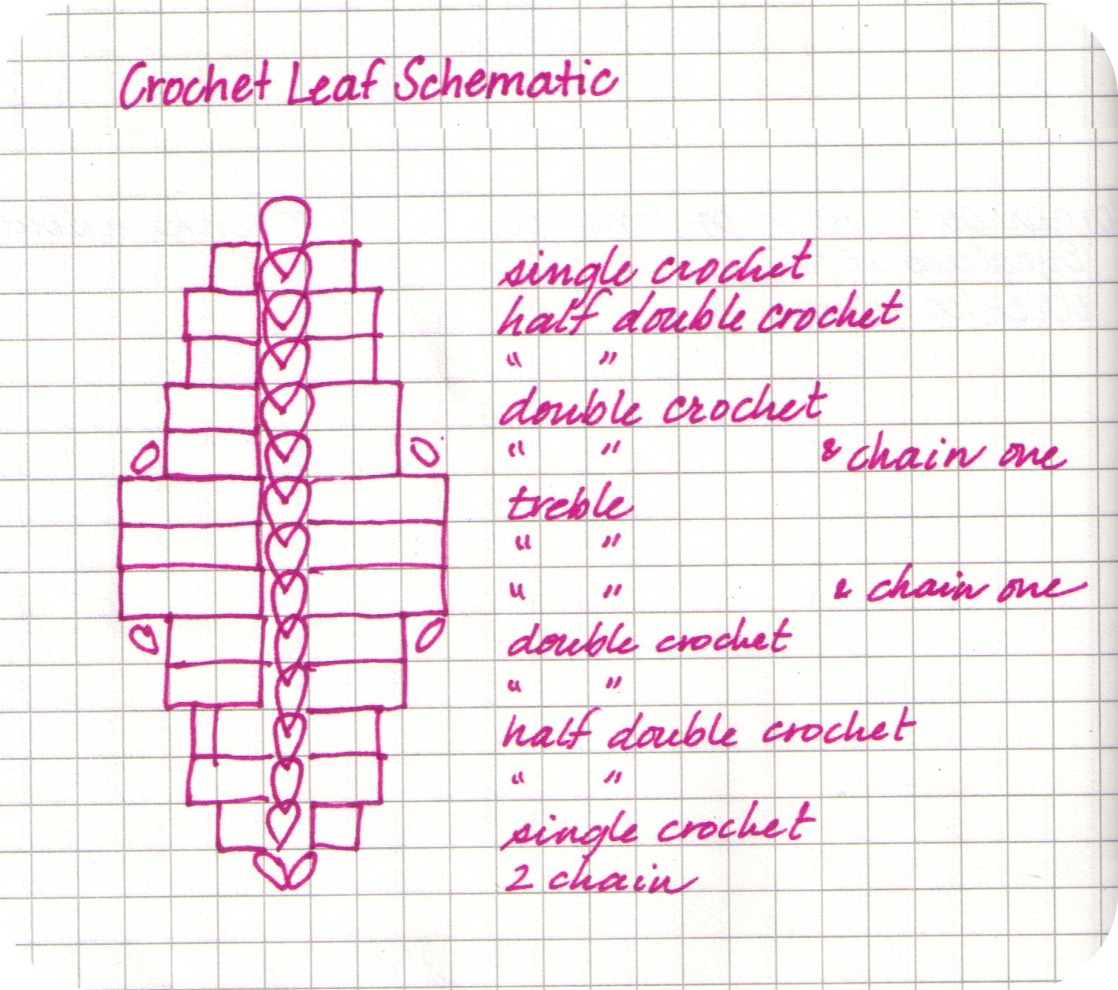 Crochet Leaf Schematic
single crochet
half double crochet
“ ”
double crochet
“ ” & chain one
treble
“ ”
“ ” & chain one
double crochet
“ ”
half double crochet
“ ”
single crochet
2 chain